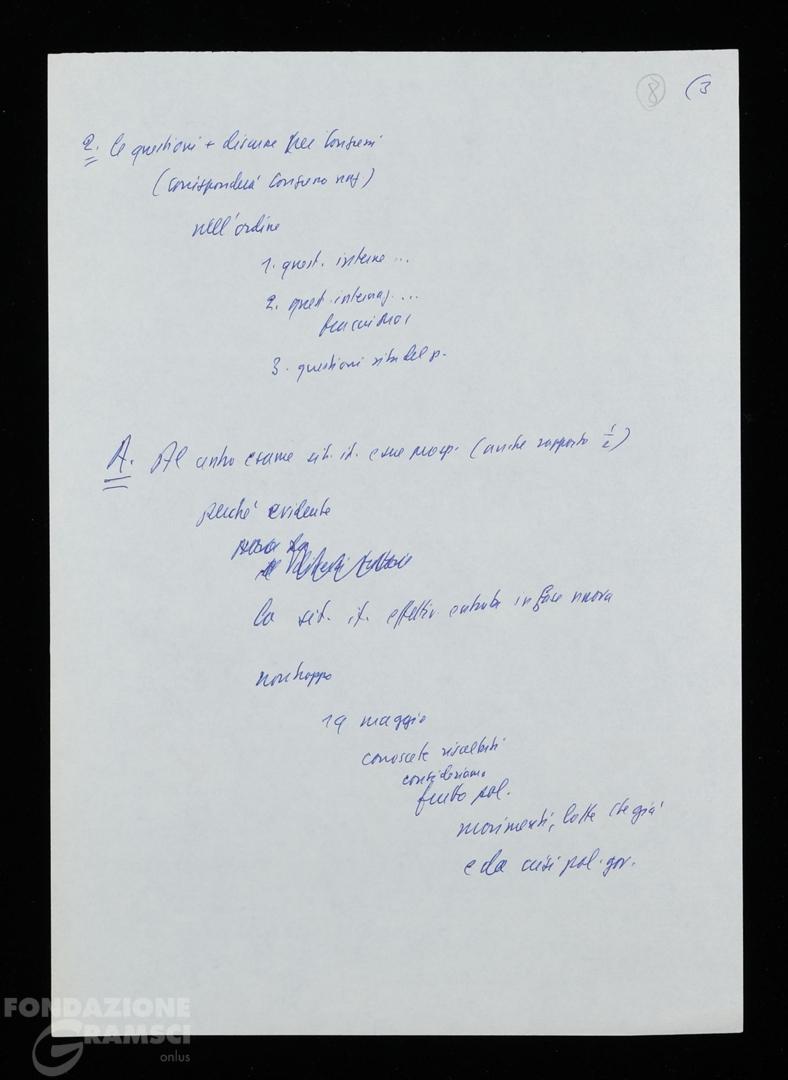 8 (3
2. le questioni + discusse per Congressi
(corrisponderà Congresso naz)
nell'ordine
1. quest. interne ...
2. quest. internaz. ...
3. questioni vita del p.
A. Al centro esame sit. it. e sue prosp. (anche rapporto 1/2)
perché evidente
la sit. it. effettiv. entrata in fase nuova
non troppo
19 maggio
conoscete risultati
consideriamo
frutto pol.
movimenti, lotte che già
e da crisi pol. gov.
FONDAZIONE
GRAMSCI
onlus